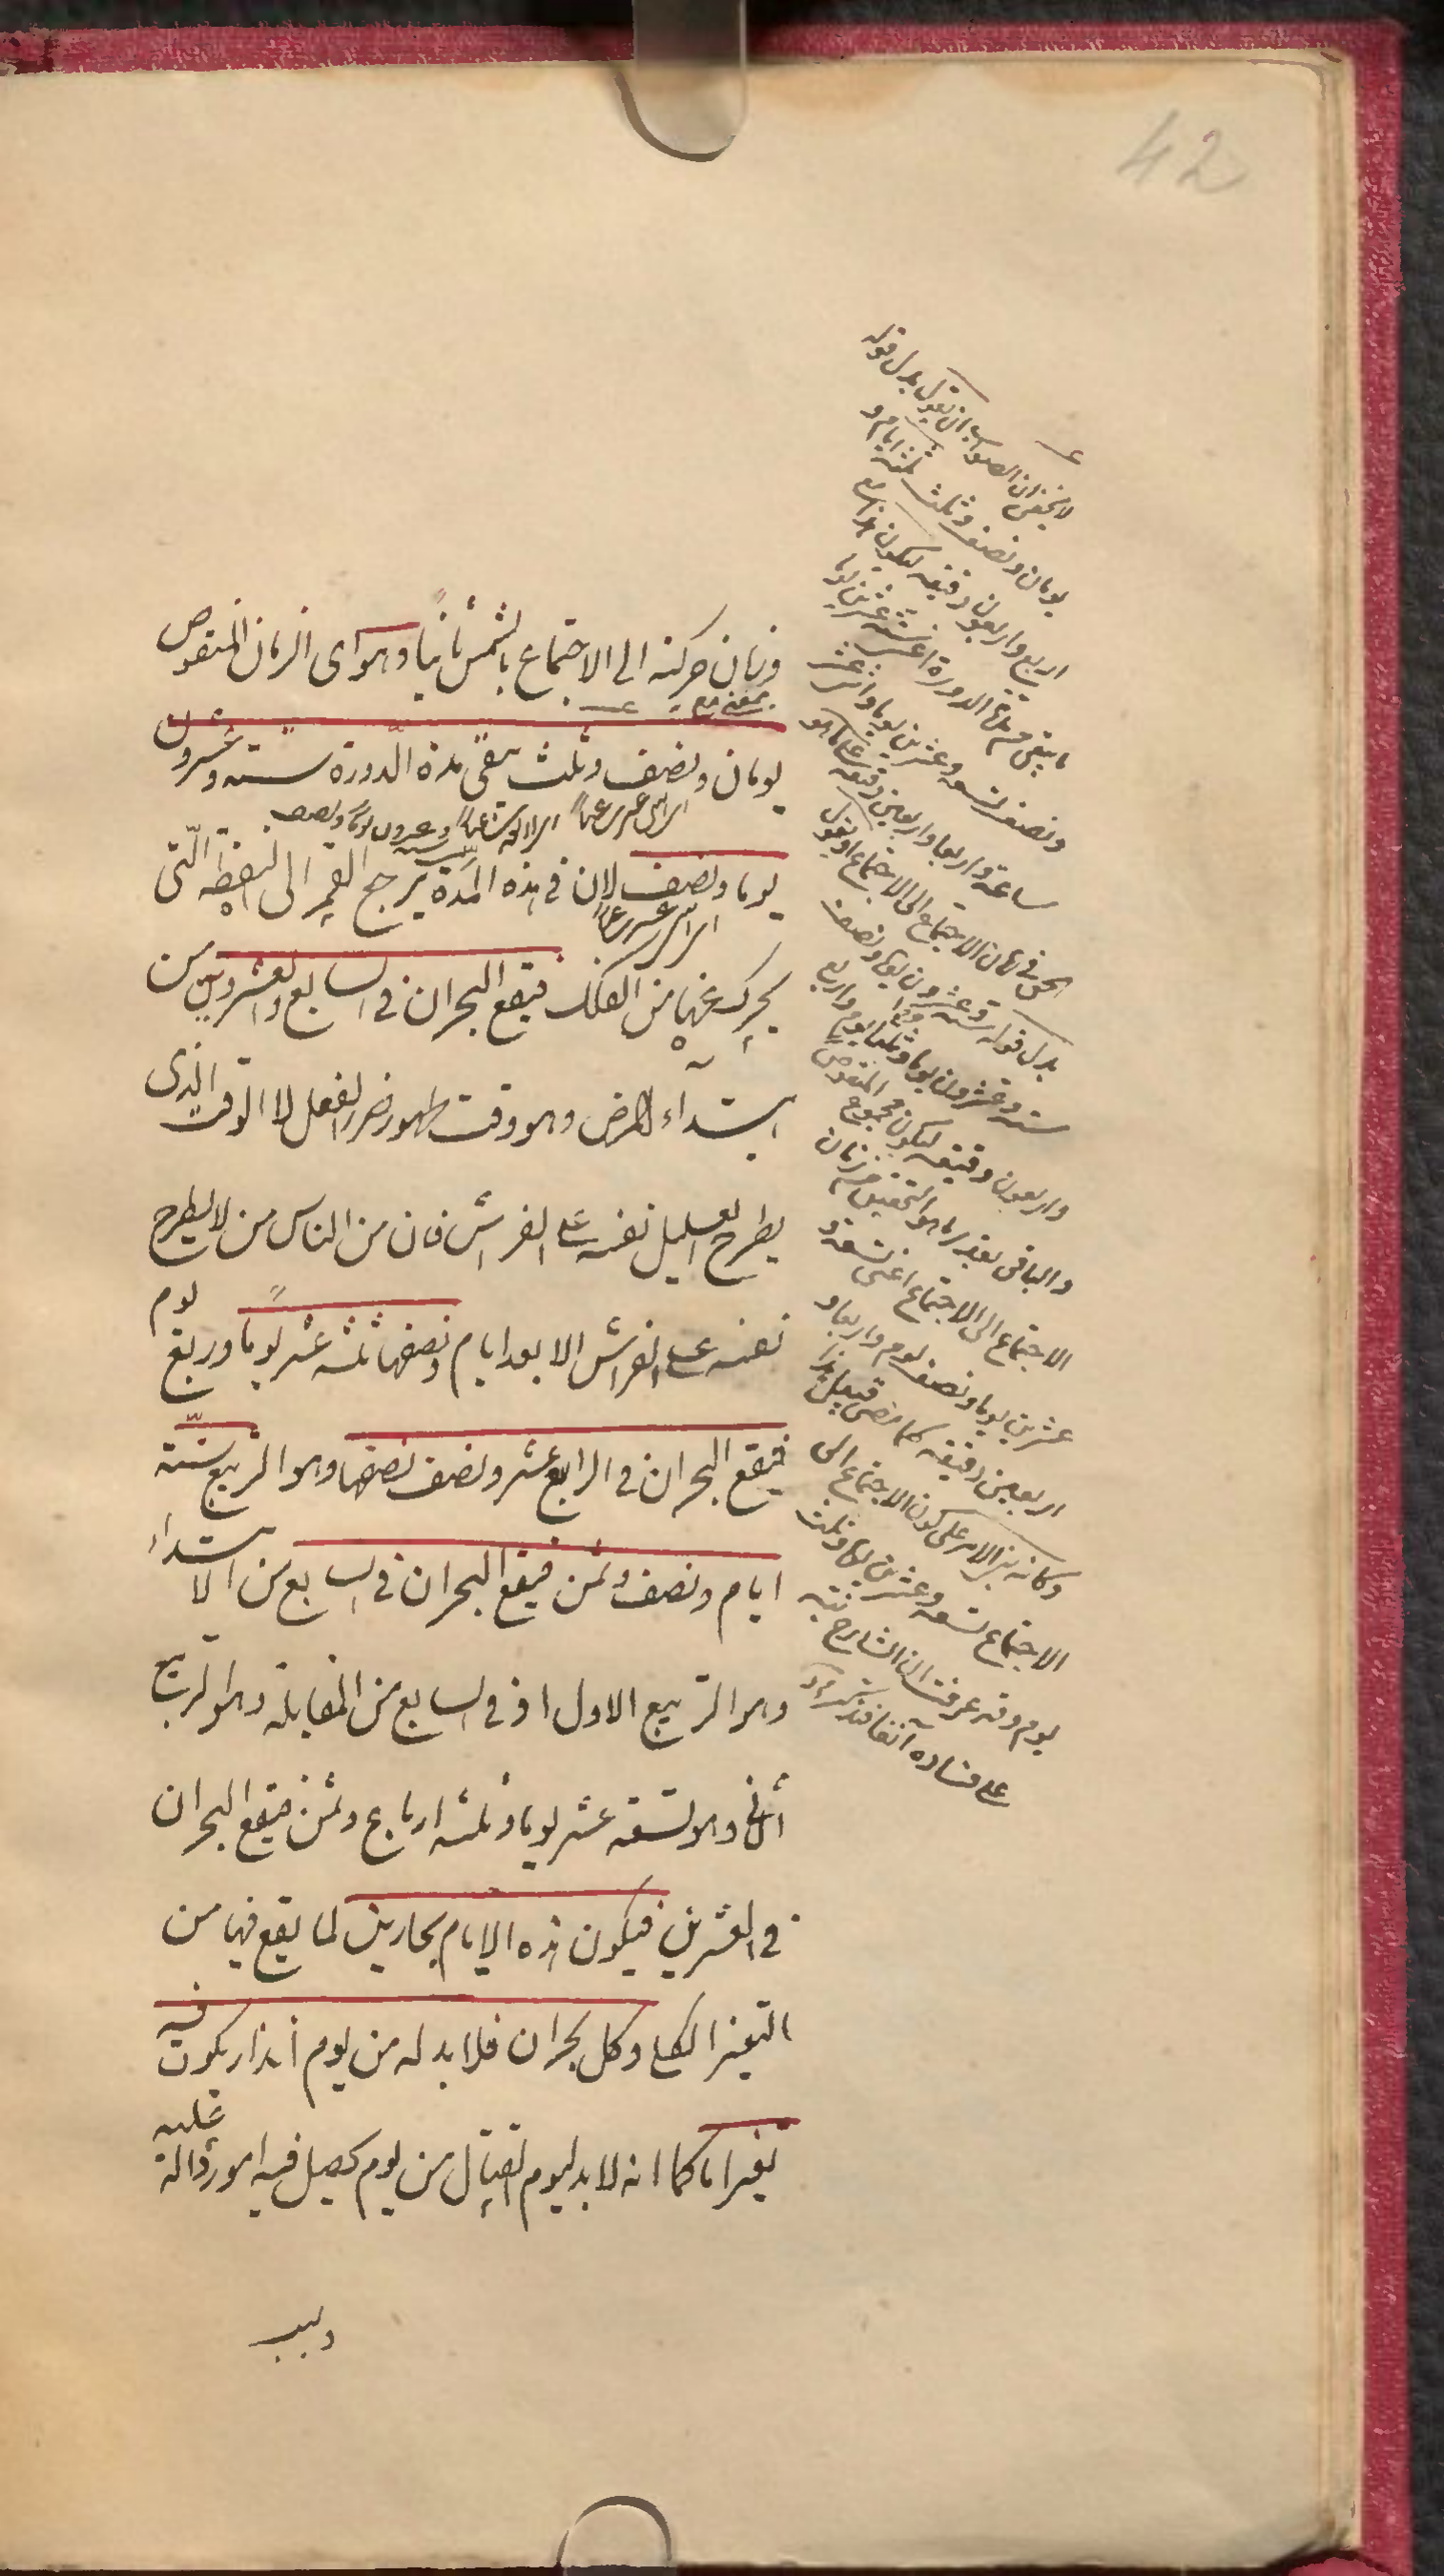 42
وزمان حركته الى الاجتماع بالشمس ثانيا وهو اى الزمان المنقوص
يومان ونصف وثلث يبقى مدة الدورة ستة وعشرون
يوما ونصف لان في هذه المدة يرجع القمر الى النقطة التى
يحرك عنها من الفلك فيقع البحران في السابع والعشرين من
ابتداء المرض وهو وقت ظهور ضرر الفعل لا الوقت الذى
يطرح العليل نفسه على الفراش فان من الناس من لا يطرح
نفسه على الفراش الا بعد ايام ونصفها ثلثة عشر يوما وربع يوم
فيقع البحران في الرابع عشر ونصف نصفها وهو التربيع ستة
ايام ونصف وثمن فيقع البحران في السابع من الابتداء
وهو التربيع الاول او في السابع من المقابلة وهو التربيع
الثانى وهو تسعة عشر يوما وثلثة ارباع وثمن فيقع البحران
في العشرين فيكون هذه الايام بحارين لما يقع فيها من
التغير الكلى وكل بحران فلا بد له من يوم انذار يكون فيه
تغير ما كما انه لا بد ليوم القتال من يوم يحصل فيه امور دالة عليه
لا يخفى ان الصواب ان يقول بدل قوله
يومان ونصف وثلث ثلثة ايام و
اربع واربعون دقيقة ليكون هذا مع
ما بقى من مدة الدورة اعنى ستة وعشرين يوما
ونصف تسعة وعشرين يوما واثنى عشر
ساعة واربعا واربعين دقيقة على ما هو
الحق في زمان الاجتماع الى الاجتماع او يقول
بدل قوله ستة وعشرون يوما ونصف
ستة وعشرون يوما وثلثا يوم واربع
واربعون دقيقة ليكون مجموع المنقوص
والباقى بقدر ما هو التحقيق من زمان
الاجتماع الى الاجتماع اعنى تسعة و
عشرين يوما ونصف يوم واربعا و
اربعين دقيقة كما مضى قبيل هذا
وكانه بنى الامر على كون الاجتماع الى
الاجتماع تسعة وعشرين يوما وثلث
يوم وقد عرفت ان الشارح نبه
على فساده آنفا فتذكر